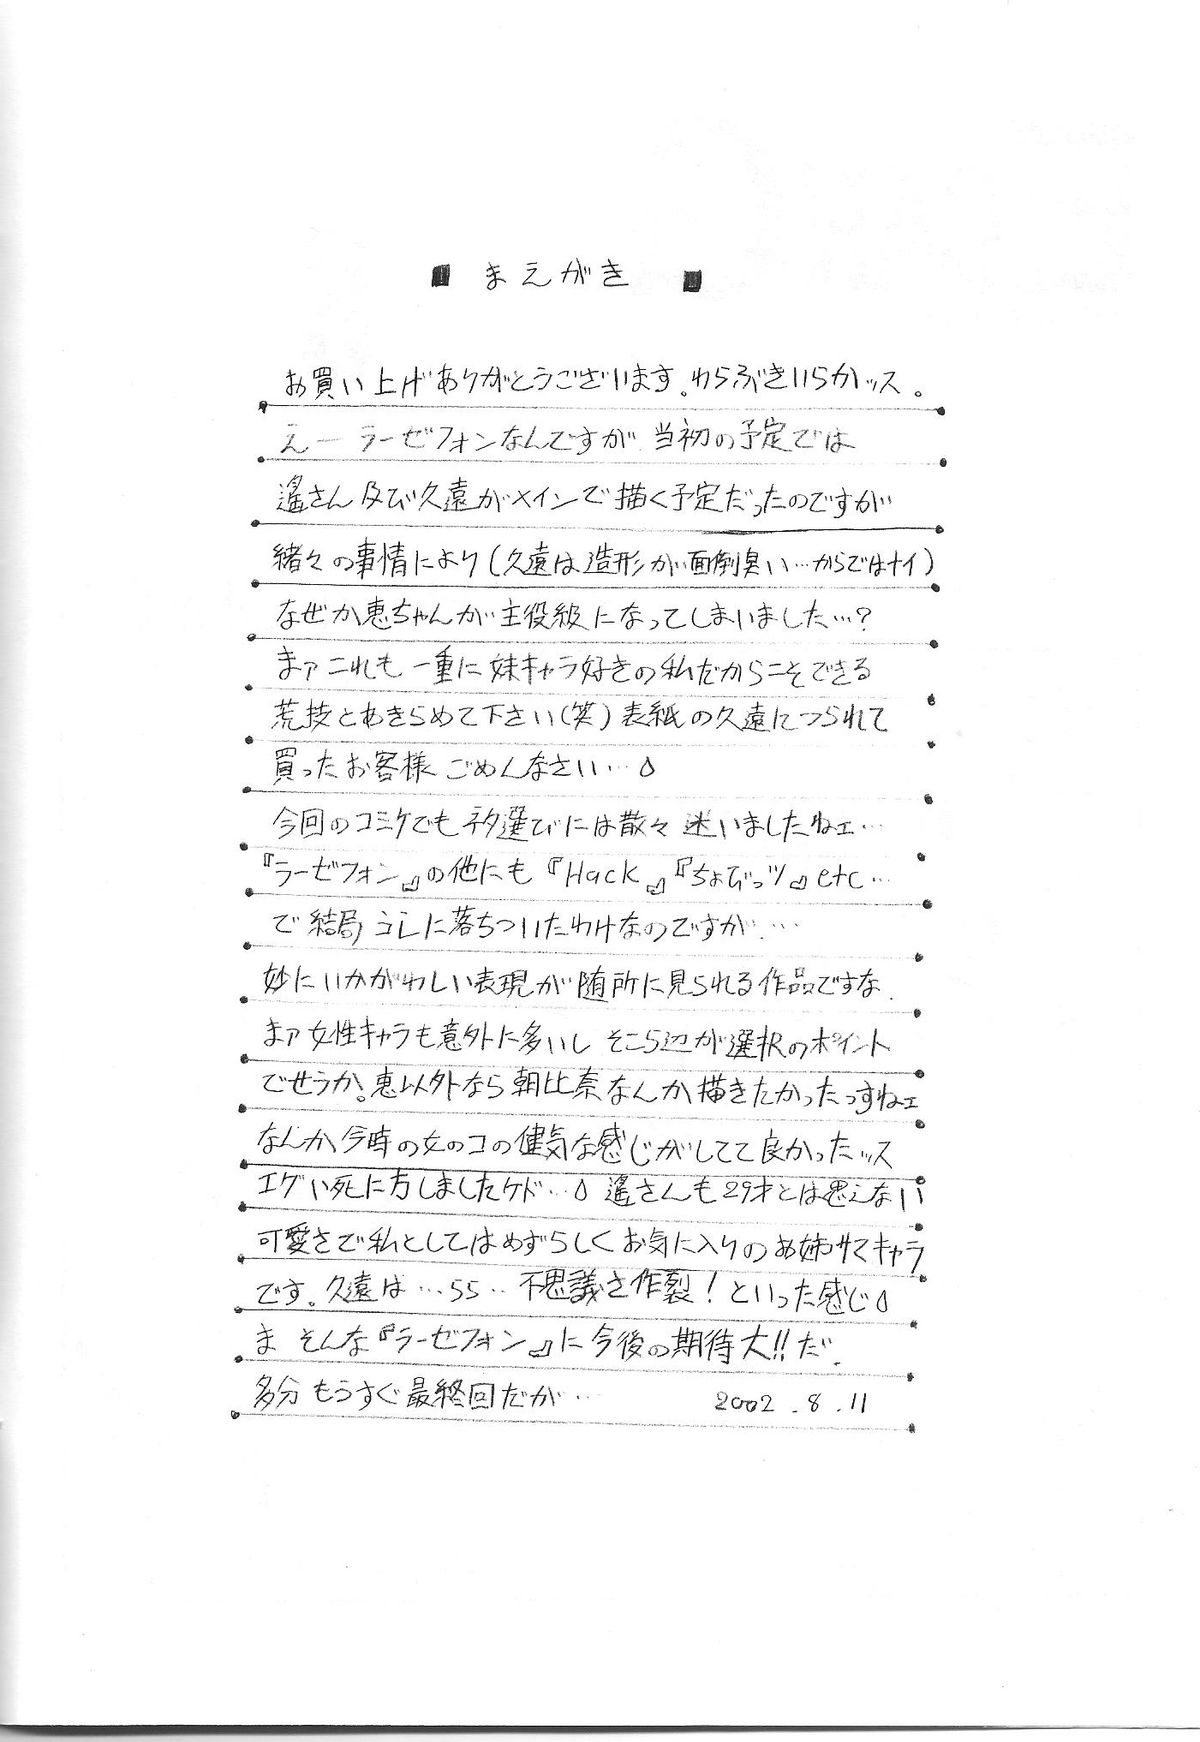 ■ まえがき ■
お買い上げありがとうございます。わらぶきいらかッス。
えー ラーゼフォンなんですが、当初の予定では
遙さん及び久遠がメインで描く予定だったのですが
緒々の事情により(久遠は造形が面倒臭い…からではナイ)
なぜか恵ちゃんが主役級になってしまいました…?
まァこれも一重に妹キャラ好きの私だからこそできる
荒技とあきらめて下さい(笑)表紙の久遠につられて
買ったお客様ごめんなさい…
今回のコミケでもネタ選びには散々迷いましたねェ…
『ラーゼフォン』の他にも『Hack』『ちょびっツ』etc…
で結局コレに落ちついたわけなのですが、…
妙にいかがわしい表現が随所に見られる作品ですな、
まァ女性キャラも意外に多いし そこら辺が選択のポイント
でせうか。恵以外なら朝比奈なんか描きたかったっすねェ
なんか今時の女のコの健気な感じがしてて良かったッス
エグい死に方しましたケド… 遙さんも29才とは思えない
可愛さで私としてはめずらしくお気に入りのお姉サマキャラ
です。久遠は…ララ…不思議さ作裂!といった感じ
ま そんな『ラーゼフォン』に今後の期待大!!だ、
多分もうすぐ最終回だが… 2002.8.11